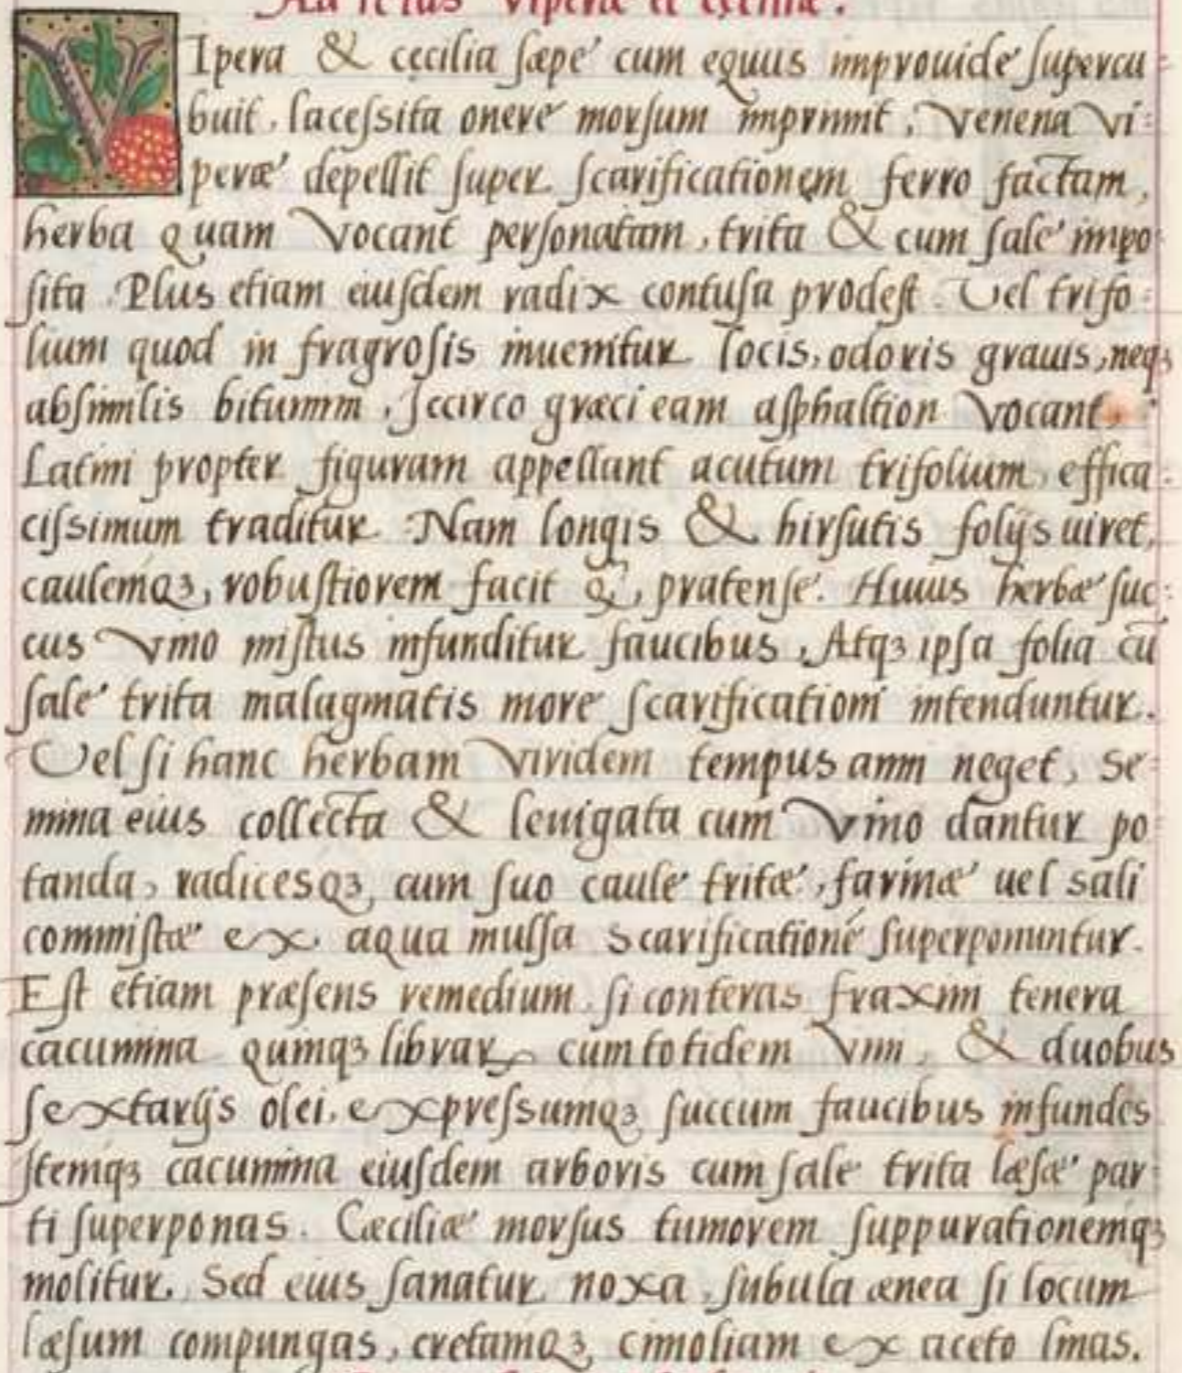 Vipera & cecilia sæpe cum equus improuide supercu-
buit, lacessita onere morsum imprimit, Venena Vi-
peræ depellit super scarificationem ferro factam,
herba quam Vocant personatam, trita & cum sale impo-
sita. Plus etiam eiusdem radix contusa prodest. Vel trifo-
lium quod in fragrosis inuenitur locis, odoris grauis, neqꝫ
absimilis bitumini, Iccirco græci eam asphaltion Vocant.
Latini propter figuram appellant acutum trifolium, effica-
cissimum traditur. Nam longis & hirsutis folijs uiret,
caulemqꝫ, robustiorem facit q̃, pratense. Huius herbæ suc-
cus Vino mistus infunditur faucibus, Atqꝫ ipsa folia cū
sale trita malagmatis more scarificationi intenduntur.
Vel si hanc herbam Viridem tempus anni neget, se-
mina eius collecta & leuigata cum Vino dantur po-
tanda, radicesqꝫ, cum suo caule tritæ, farinæ uel sali
commistæ ex aqua mulsa scarificationé superponuntur.
Est etiam præsens remedium, si conteras fraxini tenera
cacumina quinqꝫ librar, cum totidem Vini, & duobus
sextarijs olei, expressumqꝫ succum faucibus infundes
Itemqꝫ cacumina eiusdem arboris cum sale trita læsæ par-
ti superponas. Cæciliæ morsus tumorem suppurationemqꝫ
molitur. Sed eius sanatur noxa, subula ænea si locum
læsum compungas, cretamqꝫ, cimoliam ex aceto linas.